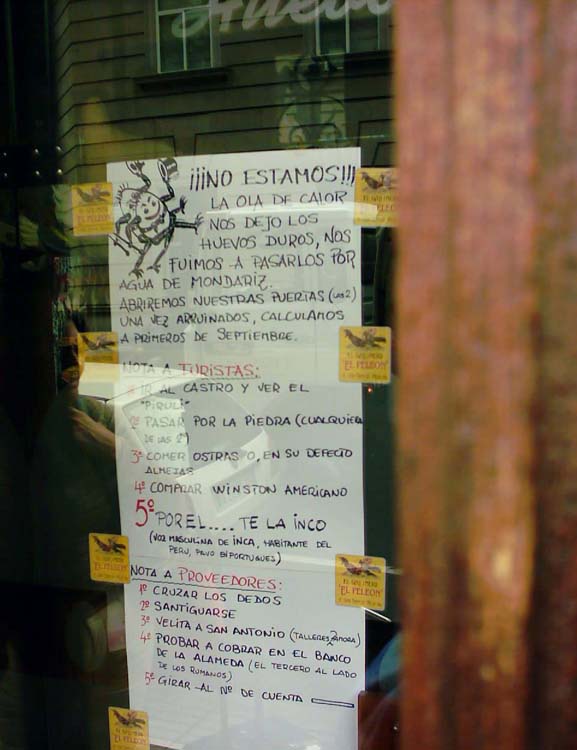 ¡¡¡NO ESTAMOS!!!
LA OLA DE CALOR
NOS DEJO LOS
HUEVOS DUROS, NOS
FUIMOS A PASARLOS POR
AGUA DE MONDARIZ.
ABRIREMOS NUESTRAS PUERTAS (LAS 2)
UNA VEZ ARRUINADOS, CALCULAMOS
A PRIMEROS DE SEPTIEMBRE.
NOTA A TURISTAS:
1º IR AL CASTRO Y VER EL
"PIRULI"
2º PASAR POR LA PIEDRA (CUALQUIERA
DE LAS 2)
3º COMER OSTRAS O, EN SU DEFECTO
ALMEJAS
4º COMPRAR WINSTON AMERICANO
5º POR EL.... TE LA INCO
(VOZ MASCULINA DE INCA, HABITANTE DEL
PERU, PAVO EN PORTUGUES)
NOTA A PROVEEDORES:
1º CRUZAR LOS DEDOS
2º SANTIGUARSE
3º VELITA A SAN ANTONIO (TALLERES ZAMORA)
4º PROBAR A COBRAR EN EL BANCO
DE LA ALAMEDA (EL TERCERO AL LADO
DE LOS RUMANOS)
5º GIRAR AL Nº DE CUENTA
"EL PELEON"
"EL PELEON"
"EL PELEON"